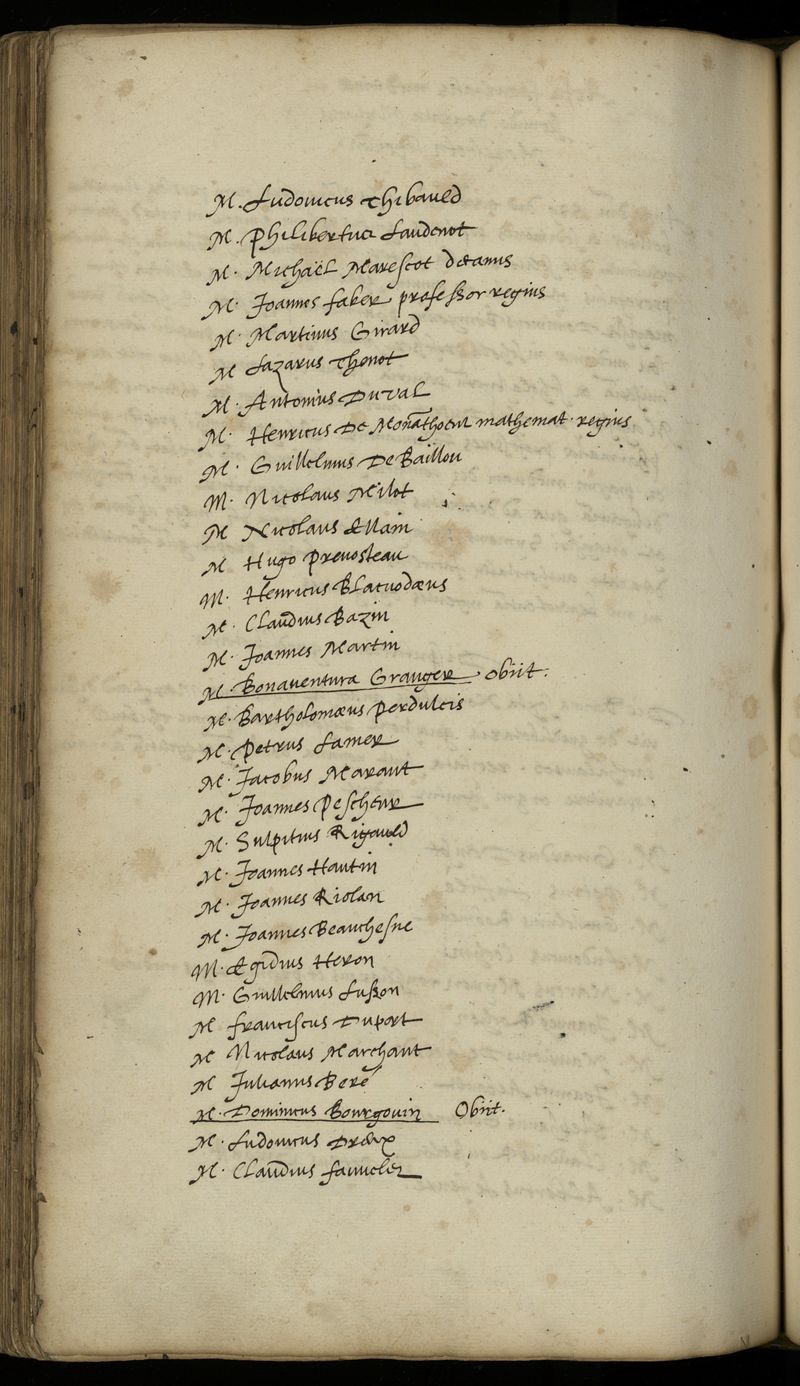 M. Ludovicus Thibauld
M. Philibertus Laudenot
M. Michaël Marescot decanus
M. Joannes faber professor regius
M. Martinus Girard
M Lazarus Thenot
M. Antonius Duval
M. Henricus De Monāthoeul mathemat. regius
M. Guillelmus De Baillou
M. Nicolaus Milot
M Nicolaus Ellain
M Hugo Prevosteau
M. Henricus Blacuodæus
M. Claudius Bazin
M. Joannes Martin
M. Bonaventura Granger. obiit.
M. Bartholomæus Perdulcis
M. Petrus Lamer
M. Jacobus Marant
M. Joannes Pescheur
M. Sulpitius Rigauld
M. Joannes Hautin
M. Joannes Riolan
M. Joannes Beauchesne
M. Ægidius Heron
M. Guillelmus Lusson
M franciscus Duport
M Nicolaus Marchant
M Julianus Beré
M. Dominicus Bourgouin Obiit.
M. Ludovicus
M. Claudius